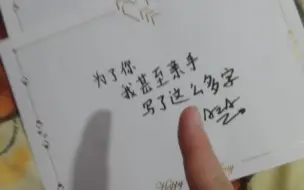 为了你
我甚至亲手
写了这么多字
Happy